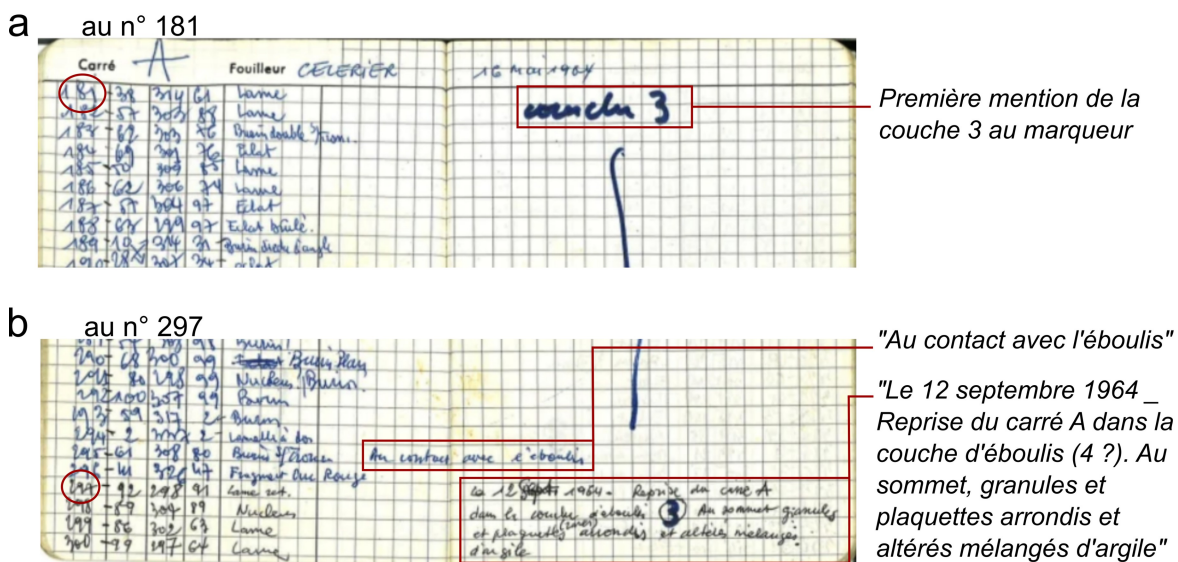 a
au n° 181
Carré A Fouilleur CELERIER 16 mai 1964
181 - 38 314 61 Lame
couche 3
182 - 57 303 88 Lame
183 - 62 303 76 Burin double /Tronc.
184 - 69 301 76 Eclat
185 - 50 309 80 Lame
186 - 62 306 74 Lame
187 - 57 304 97 Eclat
188 - 63 299 97 Eclat brûlé.
189 - 10 314 31 Burin
Première mention de la
couche 3 au marqueur
b
au n° 297
290 - 68 300 99 Burin Plan
291 80 298 99 Nucleus /Burin.
292 100 307 99 Burin
293 - 59 317 2 Burin
294 - 2 2 Lamelle à dos
295 - 61 308 80 Burin s/Tronc Au contact avec l'éboulis
296 - 41 326 47 Fragment Ocre Rouge
297 - 92 298 91 Lame ret.
298 - 89 304 89 Nucleus
299 - 86 302 63 Lame
300 - 99 297 64 Lame
Le 12 Sept 1964 - Reprise du carré A
dans la couche d'éboulis 3 Au sommet granules
et plaquettes arrondis et altérés mélangés
d'argile
"Au contact avec l'éboulis"
"Le 12 septembre 1964 _
Reprise du carré A dans la
couche d'éboulis (4 ?). Au
sommet, granules et
plaquettes arrondis et
altérés mélangés d'argile"